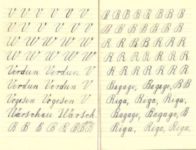 V V V V V V
V V V V V V
W W W W W W
W W W W W W
Verdun Verdun V
Verdun Verdun V
Vogesen Vogesen V
Warschau Warsch.
B B B B R B B B
R B B B B B B B
R R R R R R R
R R R B R R
R R R R R R R
R R R R R R R
Bagage, Bagage, BB
Riga, Riga, Riga,
Bagage, Bagage, B
Riga, Riga, Riga.